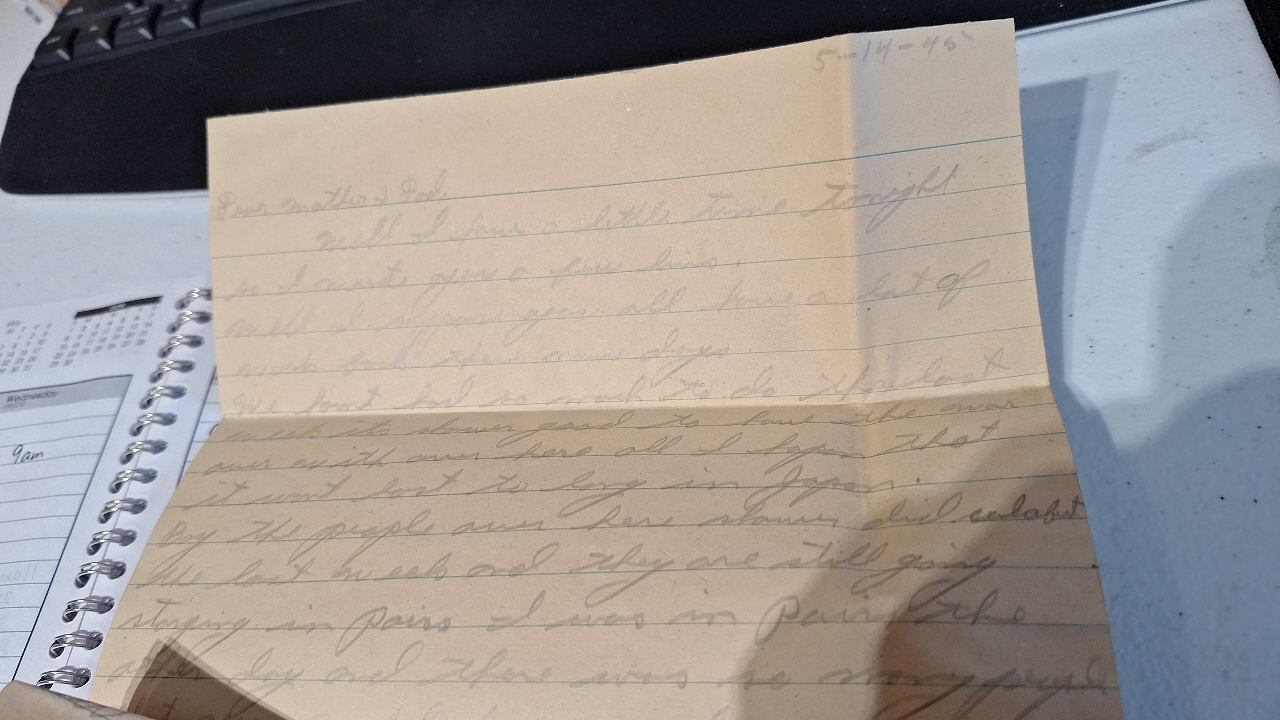 5-14-45
Dear Mother & Dad.
Well I have a little time tonight
so I write you a few lines.
Well I suppose you all have a lot of
work these days
We dont had so much to do the last
week its shower good to have the war
over with over here all I hope that
it wont last to long in Japan.
Boy the people over here shower did celabrt
the last week and they are still going
strong in Paris I was in Paris the
other day and there was so many people
Wednesday
9am